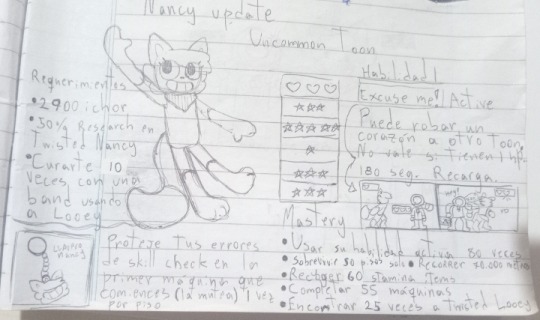 Nancy update
Uncommon Toon
Requerimientos
• 2,900 ichor
• 50% Research en
Twisted Nancy
• Curarte 10
veces con una
band usando
a Looey
Habilidad 1
Excuse me! Active
Puede robar un
corazón a otro Toon,
No vale si tienen 1 hp.
180 seg. Recarga.
Nancy
Proteje tus errores
de skill check en la
primer máquina que
comiences (la mitea) 1 vez
por piso
Mastery
• Usar su habilidad activa 80 veces
• Sobrevivir 50 pisos solo • Recorrer
• Recojer 60 stamina items
• Completar 55 máquinas
• Encontrar 25 veces a Twisted Looey